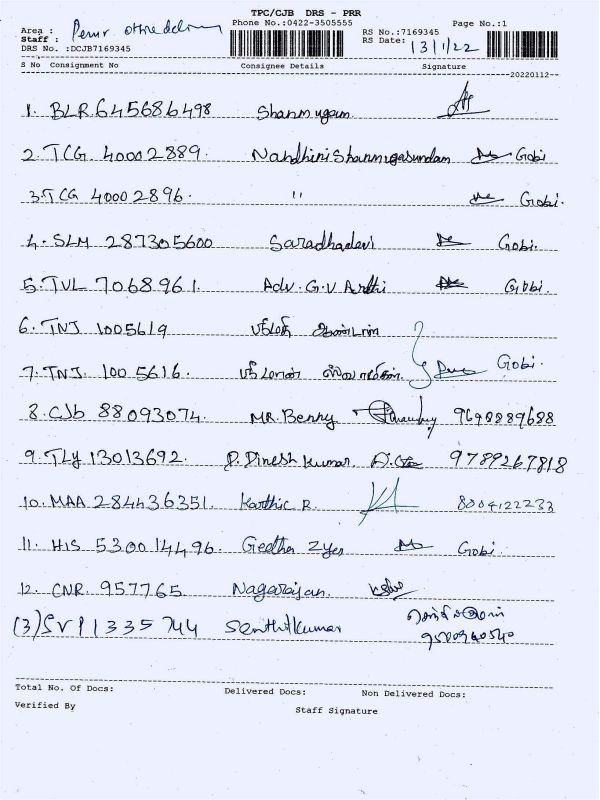 TPC/CJB DRS - PRR
Phone No.:0422-3505555
Page No.:1
Area :
Staff :
DRS No. :DCJB7169345
RS No.:7169345
RS Date: 13/1/22
S No Consignment No Consignee Details Signature
20220112
1. BLR.645686498 Shanmugam
2. TCG 40002889. Nandhini Shanmugasundam Gobi
3. TCG 40002896. " Gobi.
4. SLM 287305600 Saradhadevi Gobi.
5. TVL 7068961. Adv. G.V Gobi.
6. TNJ 1005619
7. TNJ. 1005616. Gobi.
8. CJb 88093074. MR. Benny 9698889688
9. TLY 13013692. D. Dinesh kumar 9789267818
10. MAA 284436351. Karthic R. 8004122233
11. HIS 530014496. Geetha Gobi.
12. CNR. 957765 Nagarajan.
(3) SVP1335744 Senthilkumar
Total No. Of Docs: Delivered Docs: Non Delivered Docs:
Verified By Staff Signature